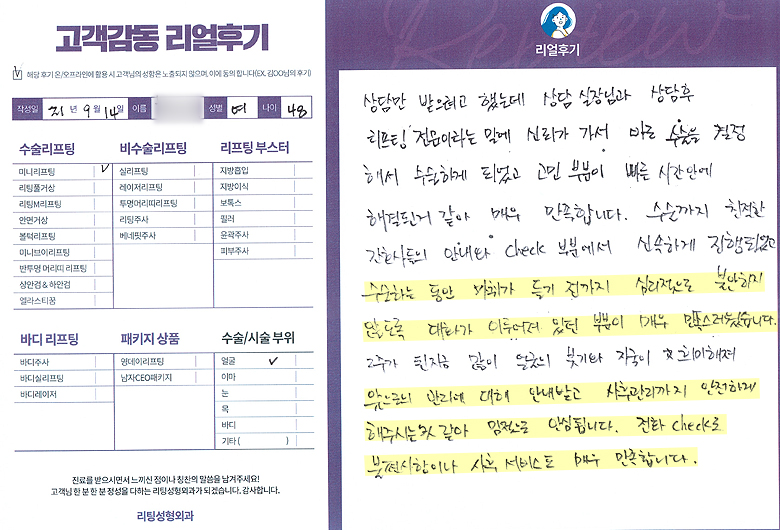 고객감동 리얼후기
해당 후기 온/오프라인에 활용 시 고객님의 성함은 노출되지 않으며, 이에 동의 합니다(EX. 김OO님의 후기)
작성일 21년 9월 14일 이름 성별 여 나이 48
수술리프팅
미니리프팅
리팅풀거상
리팅M리프팅
안면거상
볼턱리프팅
미니브이리프팅
반투명 머리띠 리프팅
상안검 & 하안검
엘라스티꿈
비수술리프팅
실리프팅
레이저리프팅
투명머리띠리프팅
리팅주사
베네핏주사
리프팅 부스터
지방흡입
지방이식
보톡스
필러
윤곽주사
피부주사
바디 리프팅
바디주사
바디실리프팅
바디레이저
패키지 상품
영데이리프팅
남자CEO패키지
수술/시술 부위
얼굴
이마
눈
목
바디
기타 ( )
진료를 받으시면서 느끼신 점이나 칭찬의 말씀을 남겨주세요!
고객님 한 분 한 분 정성을 다하는 리팅성형외과가 되겠습니다. 감사합니다.
리팅성형외과
Review
리얼후기
상담만 받으려고 했는데 상담 실장님과 상담후
리프팅 전문이라는 말에 신뢰가 가서 바로 수술을 결정
해서 수술하게 되었고 고민 부분이 빠른 시간안에
해결된거 같아 매우 만족합니다. 수술까지 친절한
간호사들의 안내와 check 부분에서 신속하게 진행되었고
수술하는 동안 마취가 들기 전까지 심리적으로 불안하지
않도록 대화가 이루어져 있던 부분이 매우 만족스러웠습니다.
2주가 된지금 많이 얼굴의 붓기와 자국이 희미해져
앞으로의 관리에 대해 안내받고 사후관리까지 안전하게
해주시는것 같아 믿음으로 안심됩니다. 전화 check로
불편사항이나 사후 서비스도 매우 만족합니다.